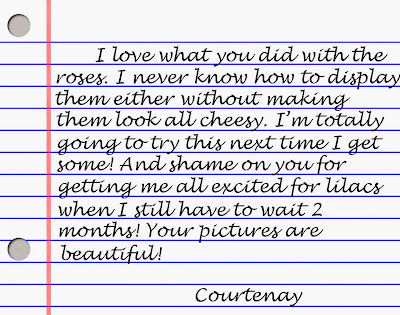 I love what you did with the
roses. I never know how to display
them either without making
them look all cheesy. I'm totally
going to try this next time I get
some! And shame on you for
getting me all excited for lilacs
when I still have to wait 2
months! Your pictures are
beautiful!
Courtenay